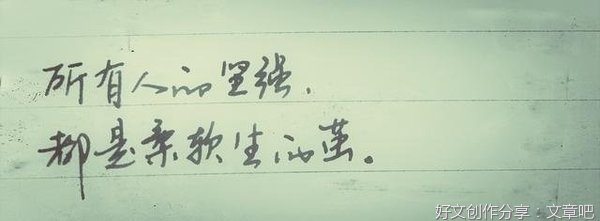 所有人的坚强，
都是柔软生的茧。
好文创作分享·文章吧